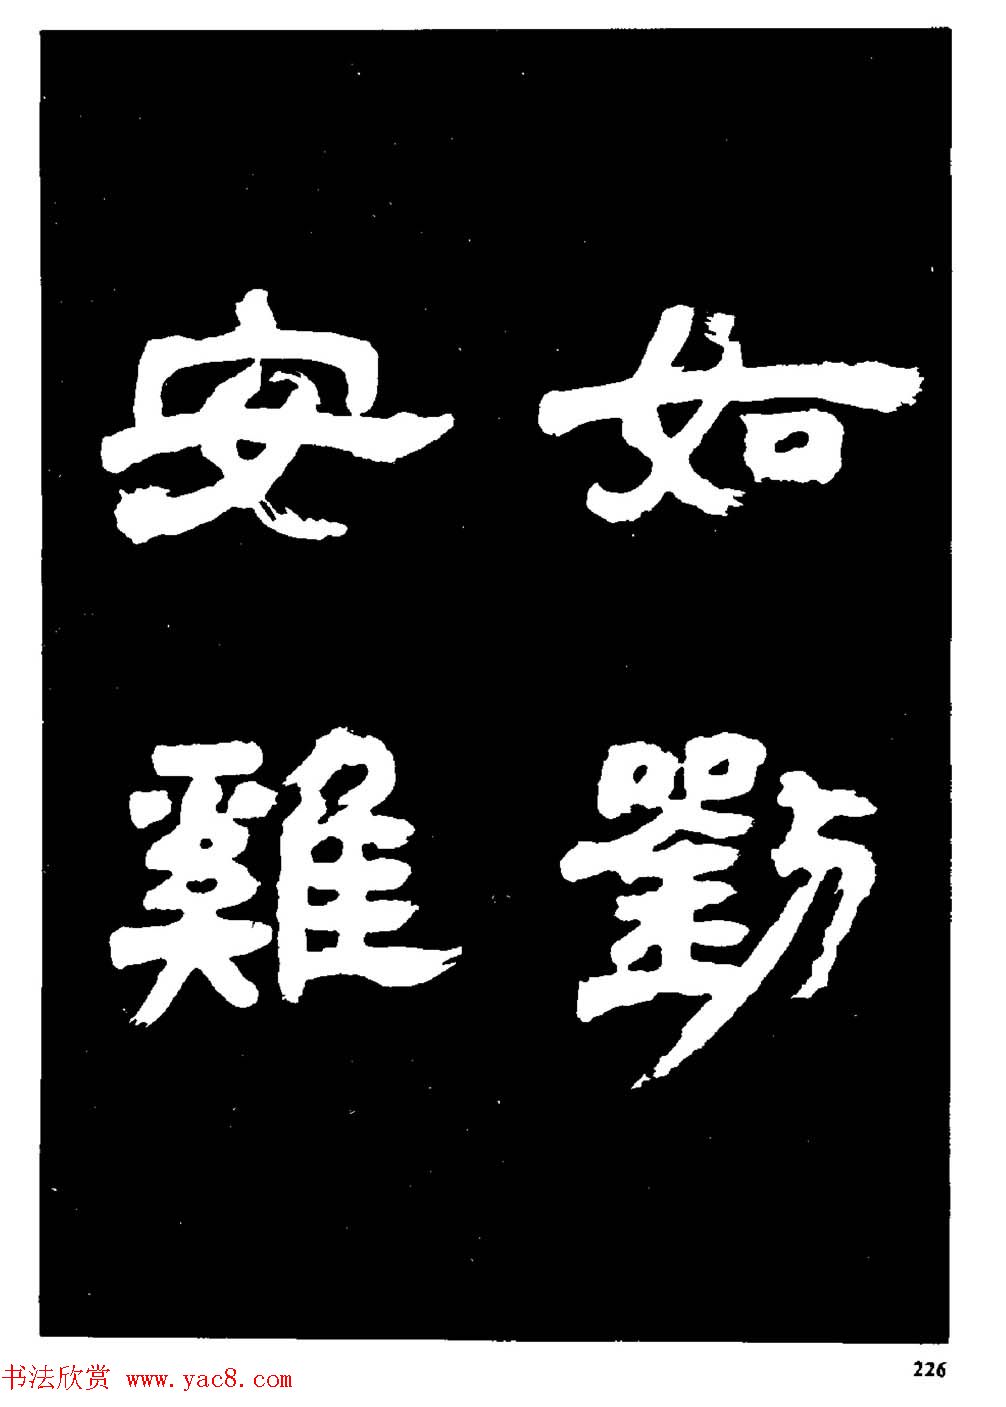 如勸
安雞
226
书法欣赏 www.yac8.com